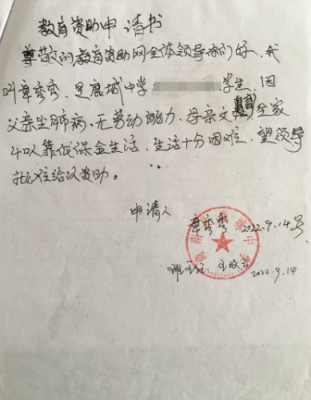 教育资助申请书
尊敬的教育资助网全体领导你们好,我
叫章秀秀,是鹿城中学 学生,因
父亲生肺病,无劳动能力,母亲文盲,全家
4口靠低保金生活,生活十分困难,望领导
批准给以资助。
申请人
章秀秀 2022.9.14号
班主任: 2022.9.14